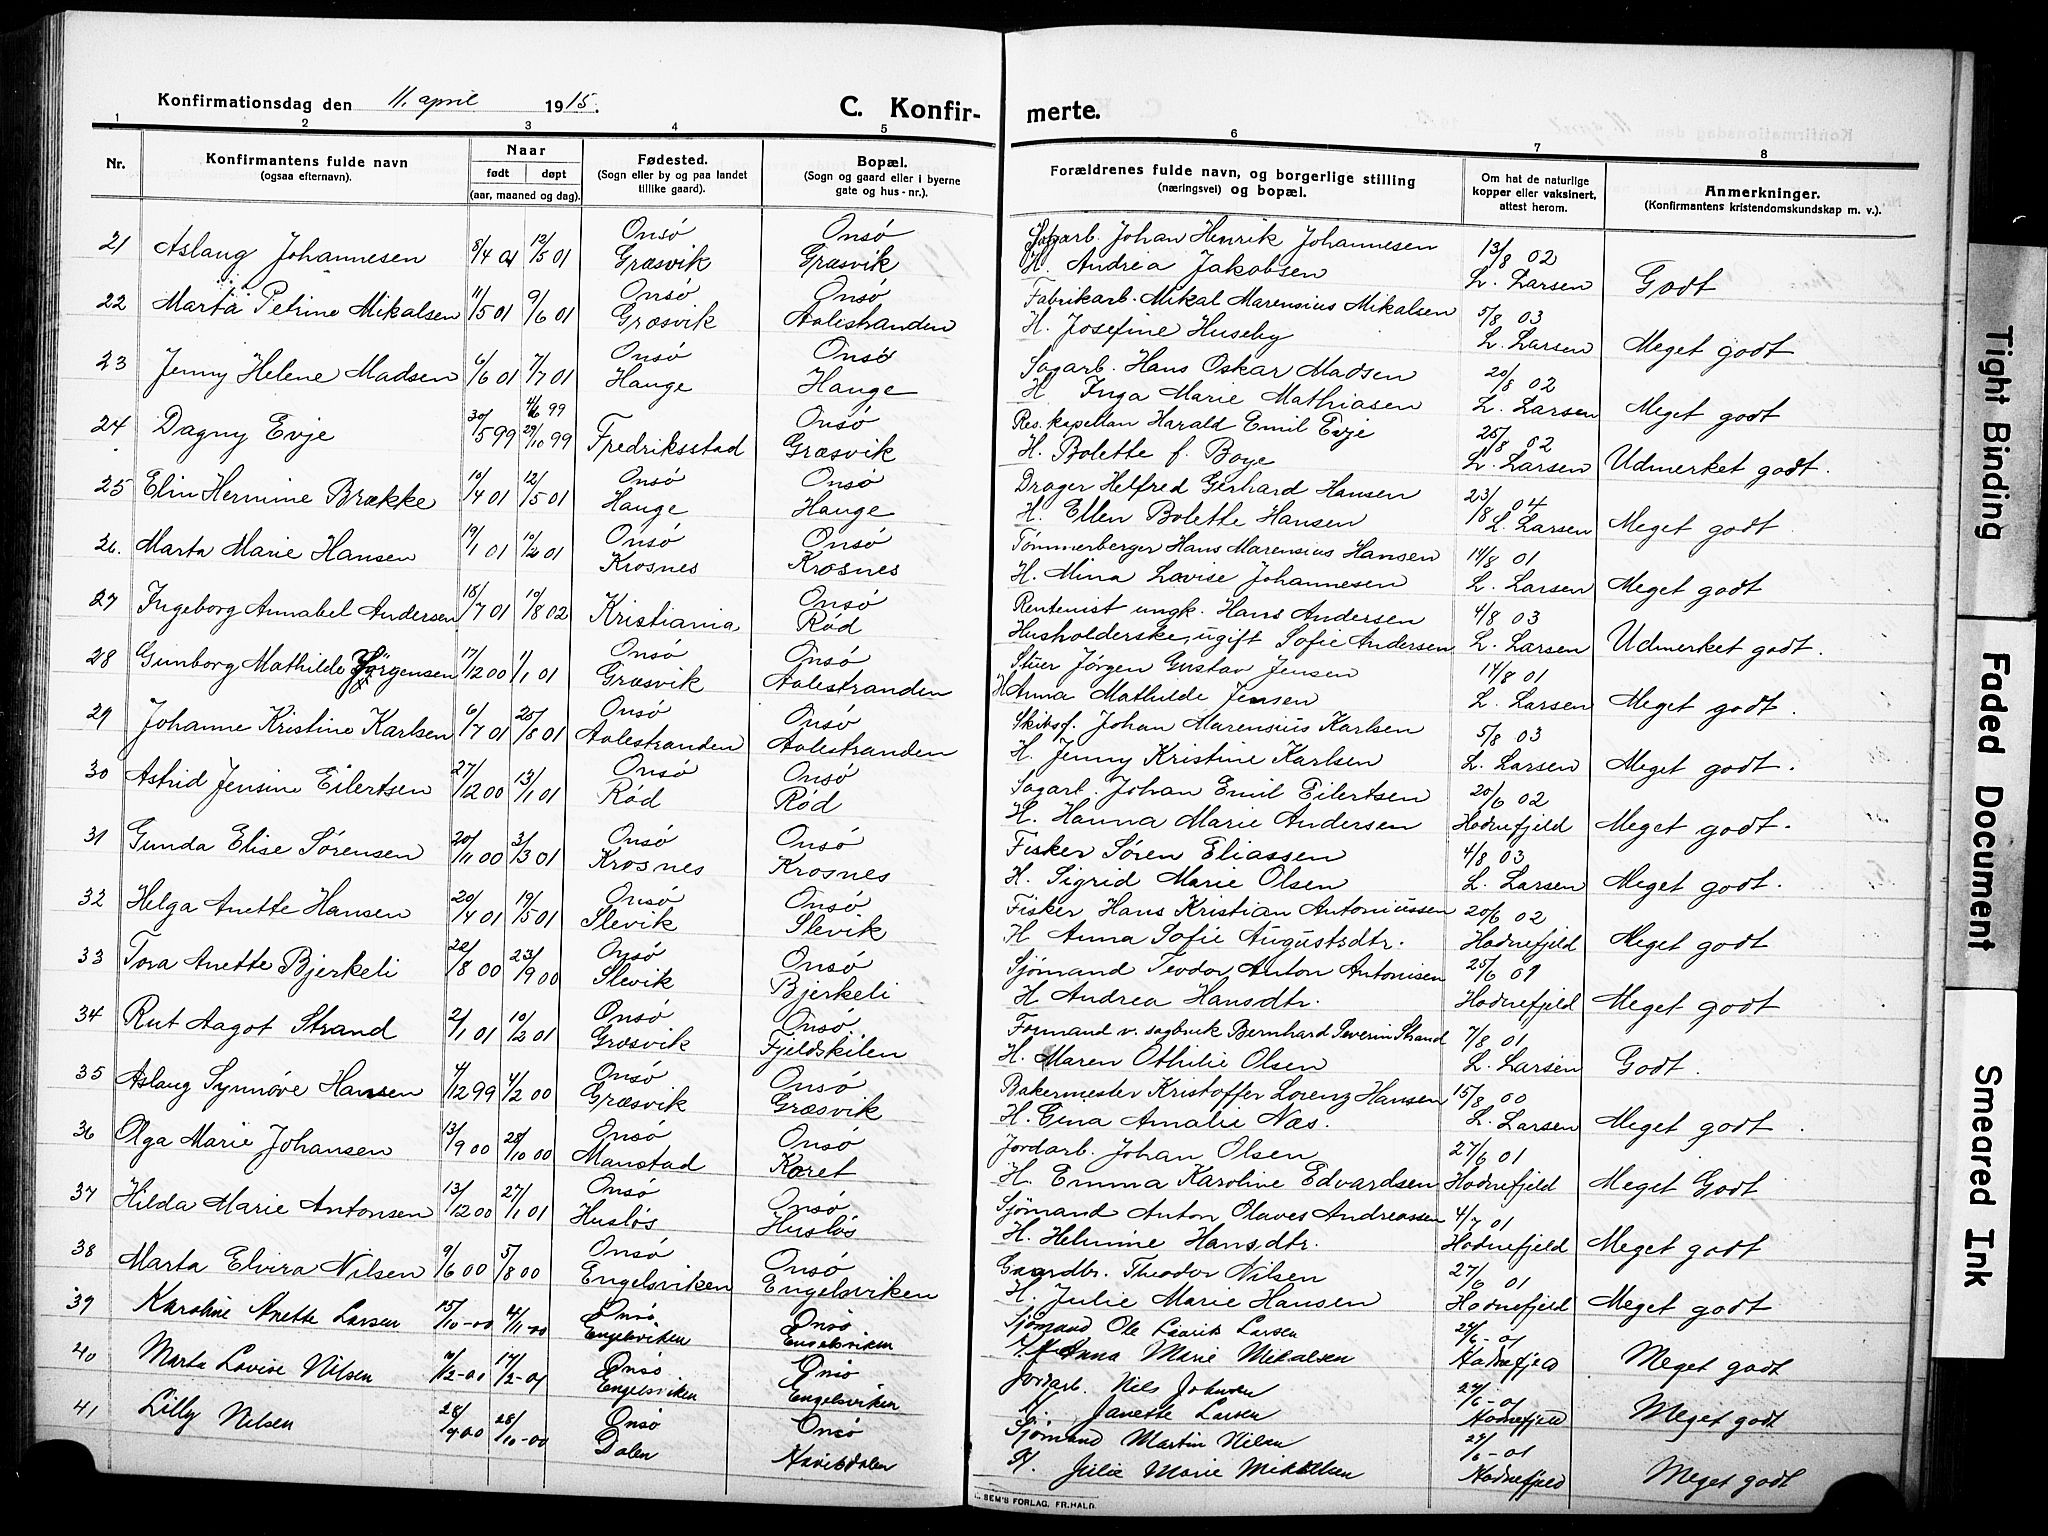 Konfirmationsdag den 11. april 1915.
C. Konfir-
merte.
1 2 3 4 5 6 7 8
Nr.
Konfirmantens fulde navn
(ogsaa efternavn).
Naar
født døpt
(aar, maaned og dag).
Fødested.
(Sogn eller by og paa landet
tillike gaard).
Bopæl.
(Sogn og gaard eller i byerne
gate og hus-nr.).
Forældrenes fulde navn, og borgerlige stilling
(næringsvei) og bopæl.
Om hat de naturlige
kopper eller vaksinert,
attest herom.
Anmerkninger.
(Konfirmantens kristendomskundskap m. v.).
21 Aslaug Johannesen 8/4 01 12/5 01 Onsö Græsvik Onsö Græsvik Sagarb. Johan Henrik Johannesen
H. Andrea Jakobsen 13/8 02 L. Larsen Godt
22 Marta Petrine Mikalsen 11/5 01 9/6 01 Onsö Græsvik Onsö Aalestranden Fabrikarb. Mikal Marensius Mikalsen
H. Josefine Huseby 5/8 03 L. Larsen Meget godt
23 Jenny Helene Madsen 6/6 01 7/7 01 Onsö Hauge Onsö Hauge Sagarb. Hans Oskar Madsen
H. Inga Marie Mathiasen 20/8 02 L. Larsen Meget godt
24 Dagny Evje 30/5 99 4/6 99 29/10 99 Fredriksstad Onsö Græsvik Res. kapellan Harald Emil Evje
H. Bolette f. Boye 25/8 02 L. Larsen Udmerket godt.
25 Elin Hermine Brække 10/4 01 12/5 01 Onsö Hauge Onsö Hauge Drager Helfred Gerhard Hansen
H. Ellen Bolette Hansen 23/8 04 L. Larsen Meget godt
26. Marta Marie Hansen 19/1 01 10/2 01 Onsö Krosnes Onsö Krosnes Tømmerberger Hans Marensius Hansen
H. Mina Lovise Johannesen 14/8 01 L. Larsen Meget godt
27 Ingeborg Annabel Andersen 18/7 01 10/8 02 Kristiania Onsö Rød Rentenist ungk. Hans Andersen
Husholderske, ugift Sofie Andersen 4/8 03 L. Larsen Udmerket godt.
28 Gunborg Mathilde Jörgensen 17/12 00 1/1 01 Onsö Græsvik Onsö Aalestranden Stuer Jørgen Gustav Jensen
H. Anna Mathilde Jensen 14/8 01 L. Larsen Meget godt.
29 Johanne Kristine Karlsen 6/7 01 25/8 01 Onsö Aalestranden Onsö Aalestranden Skibsf. Johan Marensius Karlsen
H. Jenny Kristine Karlsen 5/8 03 L. Larsen Meget godt.
30 Astrid Jensine Eilertsen 27/12 00 13/1 01 Onsö Rød Onsö Rød Sagarb. Johan Emil Eilertsen
H. Hanna Marie Andersen 20/6 02 Hodnefjeld Meget godt.
31 Gunda Elise Sørensen 20/11 00 3/3 01 Onsö Krosnes Onsö Krosnes Fisker Søren Eliassen
H. Sigrid Marie Olsen 4/8 03 L. Larsen Meget godt.
32 Helga Anette Hansen 20/4 01 19/5 01 Onsö Slevik Onsö Slevik Fisker Hans Kristian Antoniussen
H. Anna Sofie Augustsdtr. 20/6 02 Hodnefjeld Meget godt
33 Tora Anette Bjerkeli 22/8 00 23/9 00 Onsö Slevik Onsö Bjerkeli Sjømand Teodor Anton Antonisen
H. Andrea Hansdtr. 25/6 01 Hodnefjeld Meget godt
34 Rut Aagot Strand 2/1 01 10/2 01 Onsö Græsvik Onsö Fjeldskilen Formand v. sagbruk Bernhard Severin Strand
H. Maren Othilie Olsen 7/8 01 L. Larsen Godt.
35 Aslaug Synnöve Hansen 4/12 99 4/2 00 Onsö Græsvik Onsö Græsvik Bakermester Kristoffer Lorenz Hansen
H. Gina Amalie Næs. 15/8 00 L. Larsen Meget godt.
36 Olga Marie Johansen 13/9 00 28/10 00 Onsö Manstad Onsö Karet Jordarb. Johan Olsen
H. Emma Karoline Edvardsen 27/6 01 Hodnefjeld Meget Godt
37 Hilda Marie Antonsen 13/12 00 27/1 01 Onsö Husløs Onsö Husløs Sjømand Anton Olaves Andreassen
H. Helmine Hansdtr. 4/7 01 Hodnefjeld Meget godt
38 Marta Elvira Nilsen 9/6 00 5/8 00 Onsö Engelsviken Onsö Engelsviken Gaardbr. Theodor Nilsen
H. Julie Marie Hansen 27/6 01 Hodnefjeld Meget godt
39 Karoline Anette Larsen 15/10-00 4/11-00 Onsö Engelsviken Onsö Engelsviken Sjømand Ole Larsen
H. Anna Marie Mikalsen 6-01 Hodnefjeld Meget godt
40 Marta Lovise Nilsen 12-00 17/2-01 Onsö Engelsviken Onsö Engelsviken Jordarb. Nils Johnsen
H. Janette Larsen 6-01 Hodnefjeld Meget godt
41 Lilly Nilsen 28/9 00 28/10-00 Onsö Dalen Onsö Sjømand Martin Nilsen
H. Julie Marie Mikkelsen 6-01 Hodnefjeld Meget godt
SEM'S FORLAG, FR.HALD.
Tight Binding
Faded Document
Smeared Ink